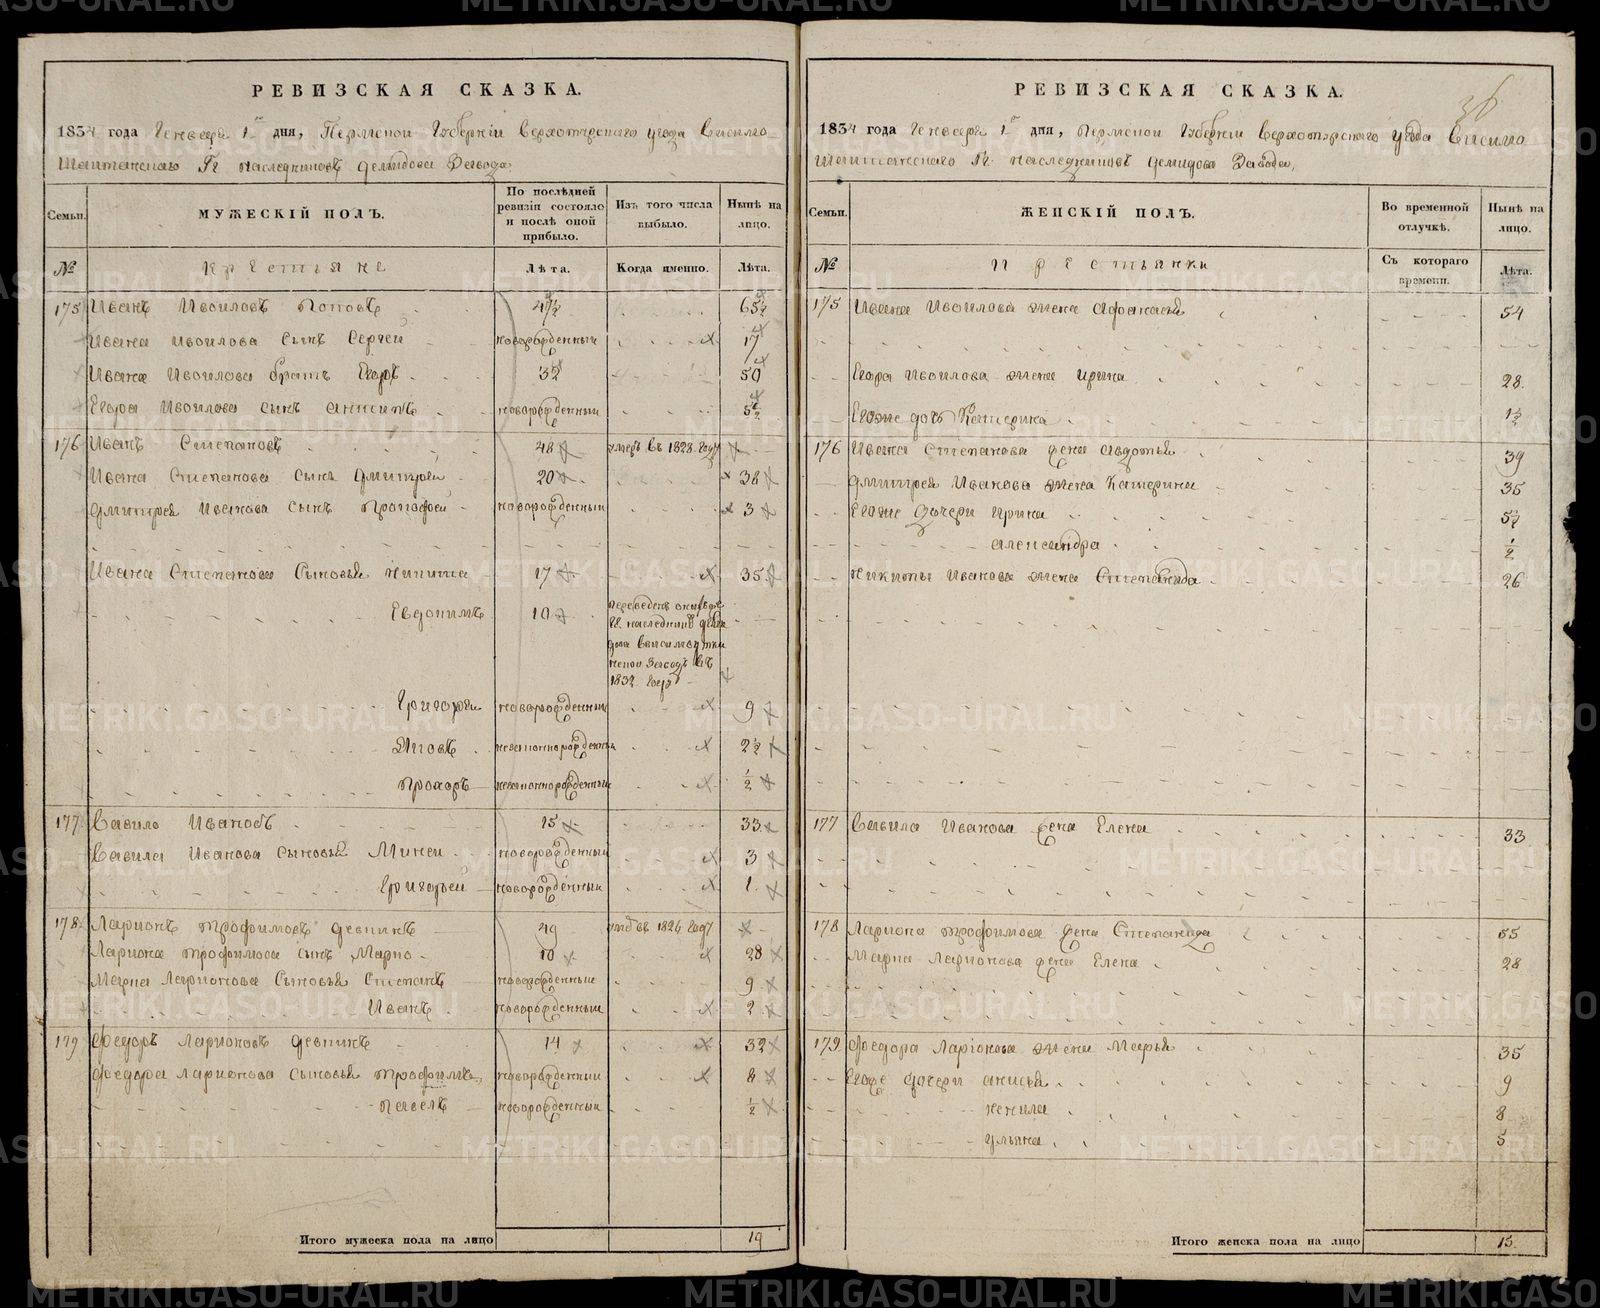 РЕВИЗСКАЯ СКАЗКА.
1834 года Генваря 1го дня, Пермской Губернiи Верхотурскаго уезда Висимо
Шайтанскаго Гг. наследниковъ Демидова Завода
Семьи. МУЖЕСКIЙ ПОЛЪ. По послѣдней ревизiи состояло и послѣ оной прибыло. Изъ того числа выбыло. Нынѣ на лицо.
№ Крестьяне Лѣта. Когда именно. Лѣта.
175 Иванъ Ивоиловъ Поповъ 65½
Ивана Ивоилова сынъ Сергей новорожденный 17
Ивана Ивоилова братъ Егоръ 32 50
Егора Ивоилова сынъ новорожденный
176 Иванъ Степановъ 48 умеръ въ 1828 году
Ивана Степанова сынъ Дмитрей 20 38
Дмитрея Иванова сынъ новорожденный 3
Ивана Степанова сыновья Никита 17 35
Евдокимъ 10 переведенъ
Гг. наследник
Висимо
Завод въ
1832 году
Григорей новорожденный 9
Яковъ 2½
Прохоръ ½
177 Вавило Ивановъ 15 33
Вавила Иванова сыновья Михеи новорожденный 3
Григорьей новорожденный 1
178 Ларионъ Трофимовъ 49 въ 1826 году
Лариона Трофимова сынъ Марко 10 28
Марка Ларионова сыновья Степанъ новорожденный 9
Иванъ новорожденный 2
179 Федоръ Ларионовъ 14 32
Федора Ларионова сыновья Трофимъ новорожденный 8
Павелъ новорожденный ½
Итого мужеска пола на лицо 19
36
РЕВИЗСКАЯ СКАЗКА.
1834 года Генваря 1го дня, Пермской Губернiи Верхотурскаго уезда Висимо
Шайтанскаго Гг. наследниковъ Демидова Завода,
Семьи. ЖЕНСКIЙ ПОЛЪ. Во временной отлучкѣ. Нынѣ на лицо.
№ Крестьянки Съ котораго времени. Лѣта.
175 Ивана Ивоилова жена Афанасья 54
Егора Ивоилова жена Ирина 28
Егоже дочь Катерина 1½
176 Ивана Степанова жена Авдотья 39
Дмитрея Иванова жена Катерина 35
Егоже дочери Ирина
Александра ½
Никиты Иванова жена Степанида 26
177 Вавила Иванова жена Елена 33
178 Лариона Трофимова жена Степанида 55
Марка Ларионова жена Елена 28
179 Федора Ларiонова жена Марья 35
Егоже дочери Анисья 9
8
Ульяна 5
Итого женска пола на лицо 15
METRIKI.GASO-URAL.RU